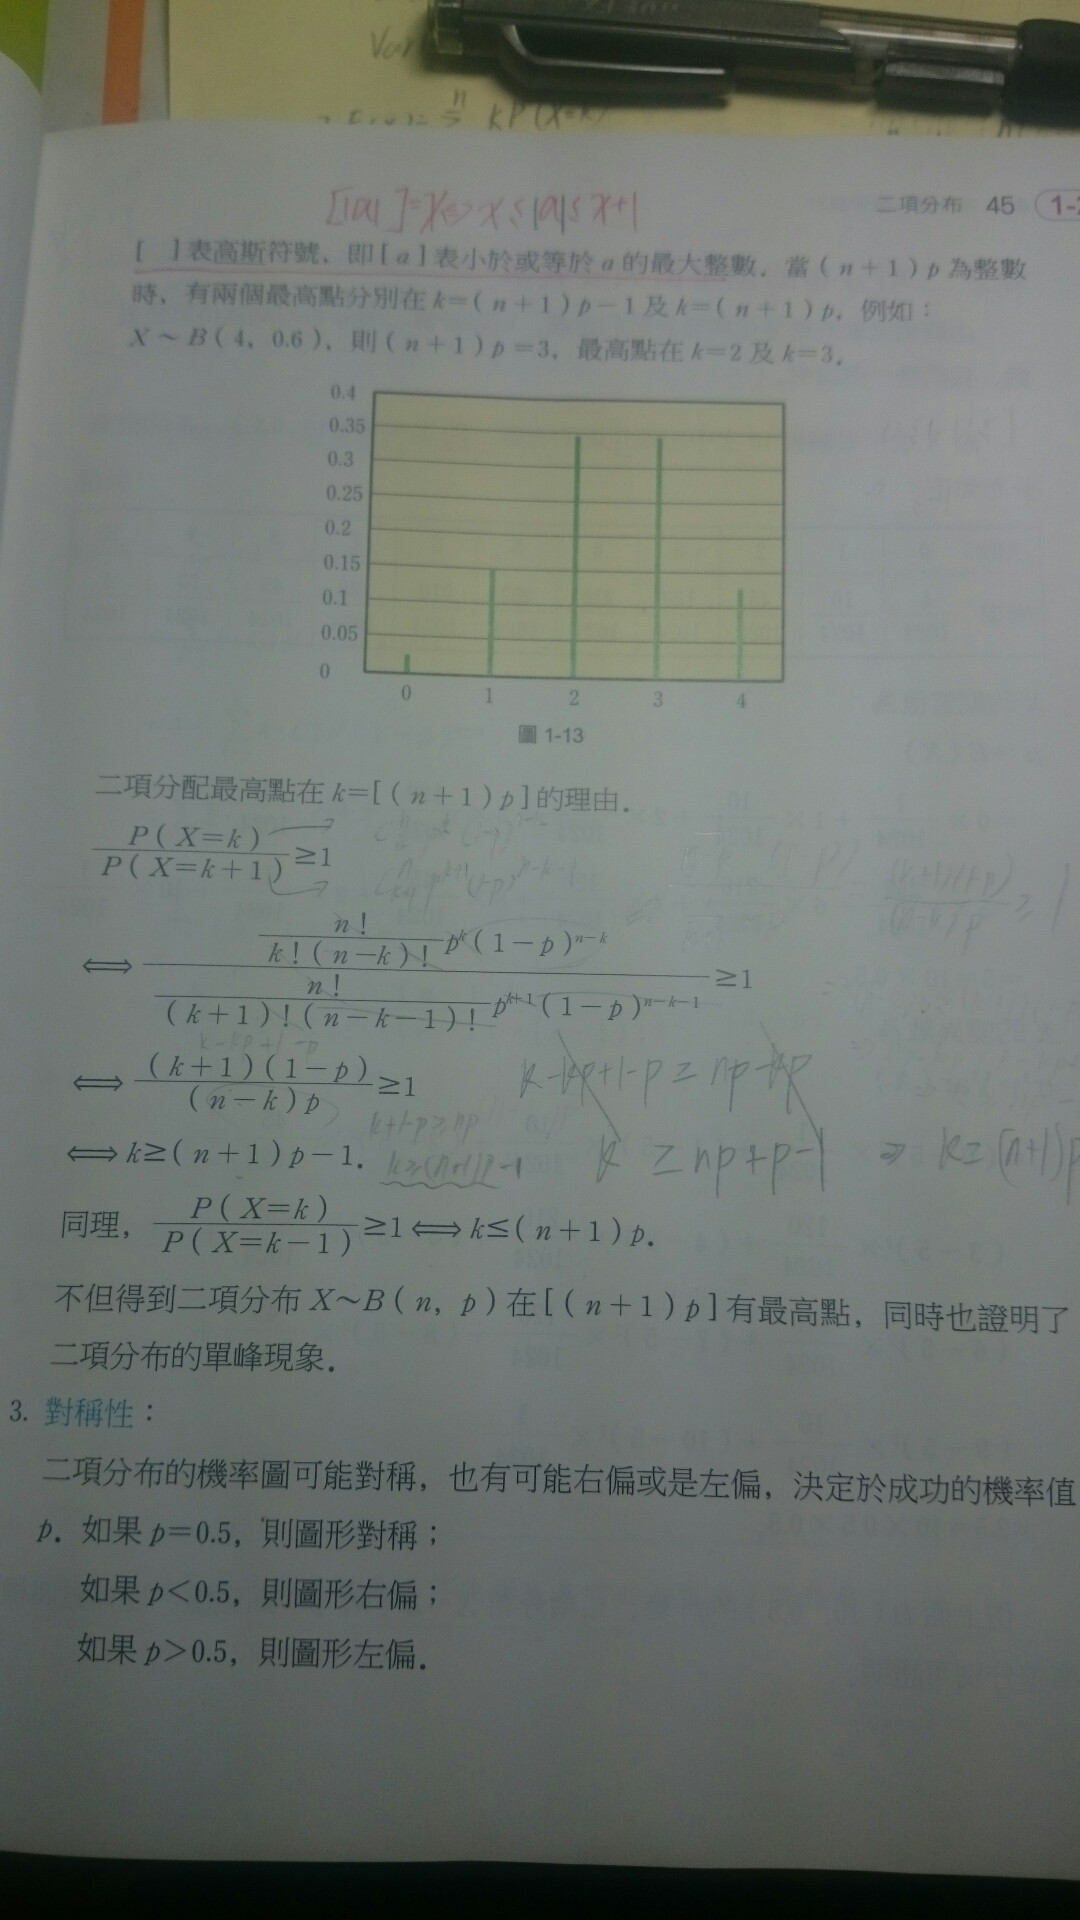 Var
kP(X=k)
[|a|]=x⇔x≤|a|≤x+1
二項分布 45
[ ]表高斯符號，即[a]表小於或等於a的最大整數．當(n+1)p為整數
時，有兩個最高點分別在k=(n+1)p-1及k=(n+1)p．例如：
X~B(4，0.6)，則(n+1)p=3，最高點在k=2及k=3．
0.4
0.35
0.3
0.25
0.2
0.15
0.1
0.05
0
0 1 2 3 4
圖 1-13
二項分配最高點在k=[(n+1)p]的理由．
P(X=k)/P(X=k+1)≥1
⟺ (n!/(k!(n-k)!) p^k(1-p)^(n-k))/(n!/((k+1)!(n-k-1)!) p^(k+1)(1-p)^(n-k-1))≥1
k-kp+1-p
⟺ (k+1)(1-p)/((n-k)p)≥1 k-kp+1-p≥np-kp
k+1-p≥np
⟺k≥(n+1)p-1． k≥(n+1)p-1 k≥np+p-1 ⇒ k≥(n+1)p
同理，P(X=k)/P(X=k-1)≥1⟺k≤(n+1)p．
不但得到二項分布X~B(n, p)在[(n+1)p]有最高點，同時也證明了
二項分布的單峰現象．
3. 對稱性：
二項分布的機率圖可能對稱，也有可能右偏或是左偏，決定於成功的機率值
p．如果p=0.5，則圖形對稱；
如果p<0.5，則圖形右偏；
如果p>0.5，則圖形左偏．